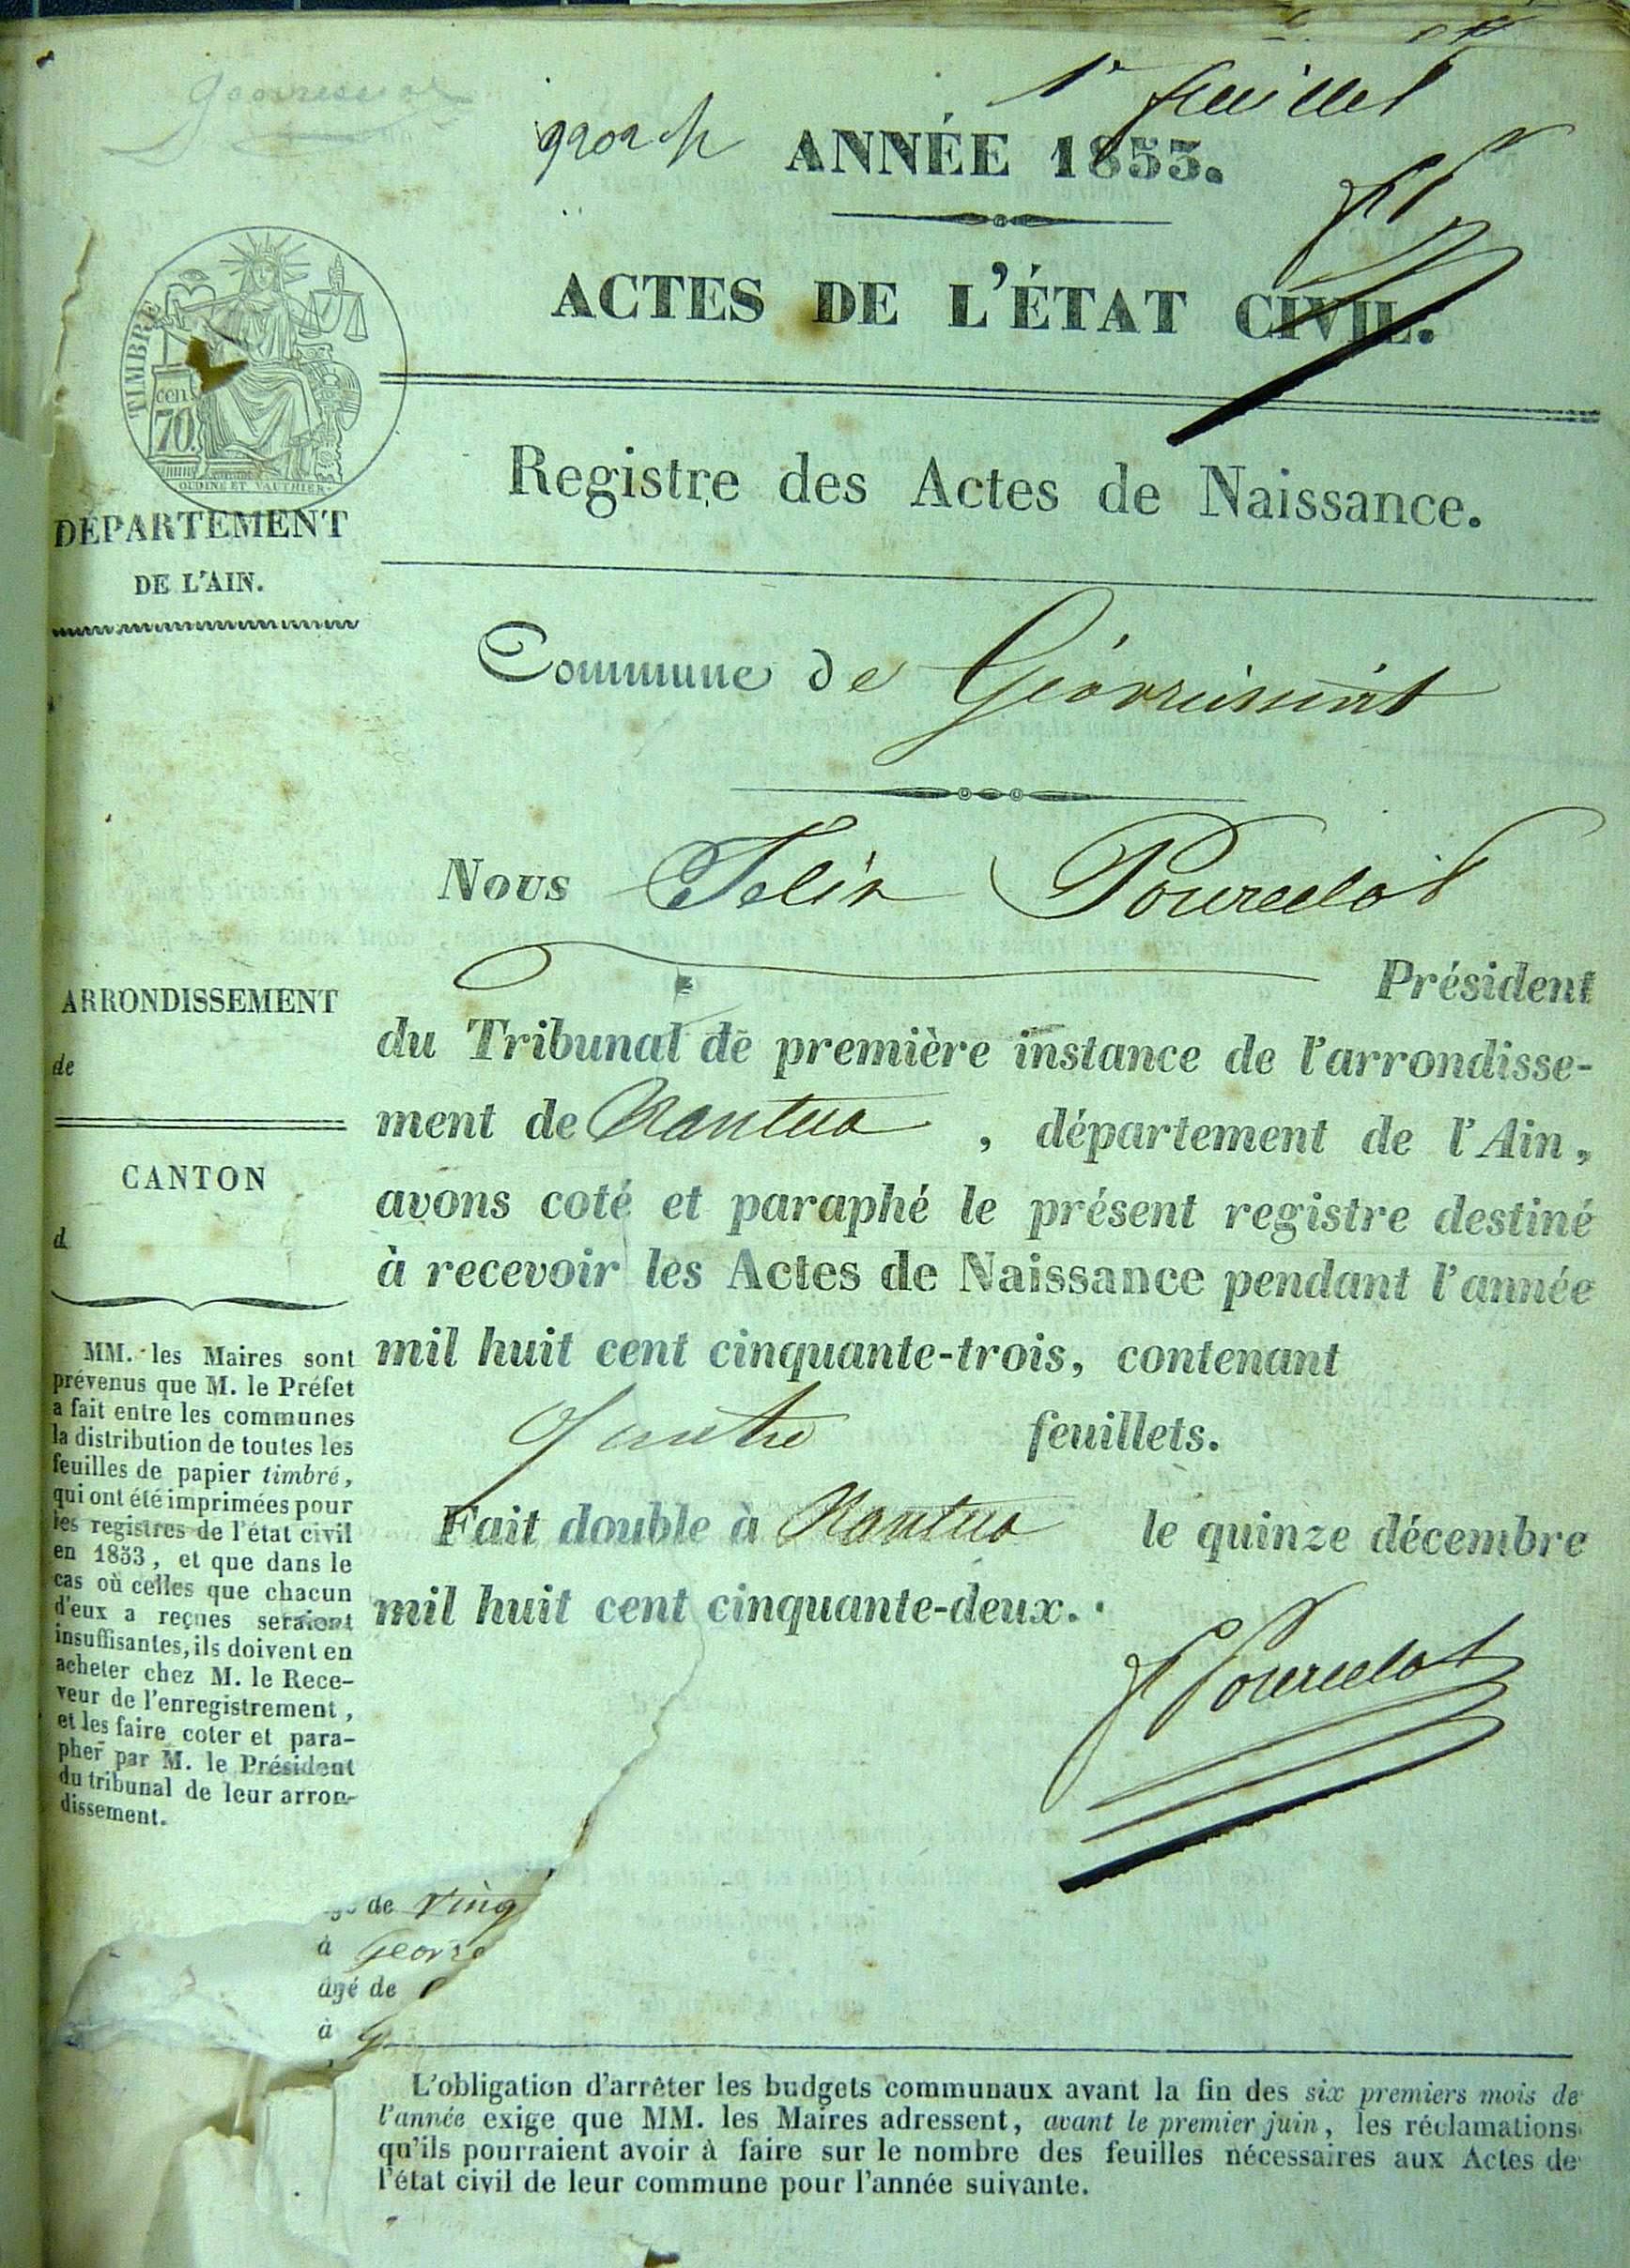 1er feuillet
ANNÉE 1853.
ACTES DE L'ÉTAT CIVIL.
TIMBRE
cen
70.
OUDINE ET VAUTHIER
Registre des Actes de Naissance.
DÉPARTEMENT
DE L'AIN.
Commune de
Nous Félix Pourcelot
Président
du Tribunal de première instance de l'arrondisse-
ment de Nantua, département de l'Ain,
avons coté et paraphé le présent registre destiné
à recevoir les Actes de Naissance pendant l'année
mil huit cent cinquante-trois, contenant
quatre feuillets.
Fait double à Nantua le quinze décembre
mil huit cent cinquante-deux.
F Pourcelot
ARRONDISSEMENT
de
CANTON
d
MM. les Maires sont
prévenus que M. le Préfet
a fait entre les communes
la distribution de toutes les
feuilles de papier timbré,
qui ont été imprimées pour
les registres de l'état civil
en 1853, et que dans le
cas où celles que chacun
d'eux a reçues seraient
insuffisantes, ils doivent en
acheter chez M. le Rece-
veur de l'enregistrement,
et les faire coter et para-
pher par M. le Président
du tribunal de leur arron-
dissement.
de ving
à Geor
âgé de
à
L'obligation d'arrêter les budgets communaux avant la fin des six premiers mois de
l'année exige que MM. les Maires adressent, avant le premier juin, les réclamations
qu'ils pourraient avoir à faire sur le nombre des feuilles nécessaires aux Actes de
l'état civil de leur commune pour l'année suivante.